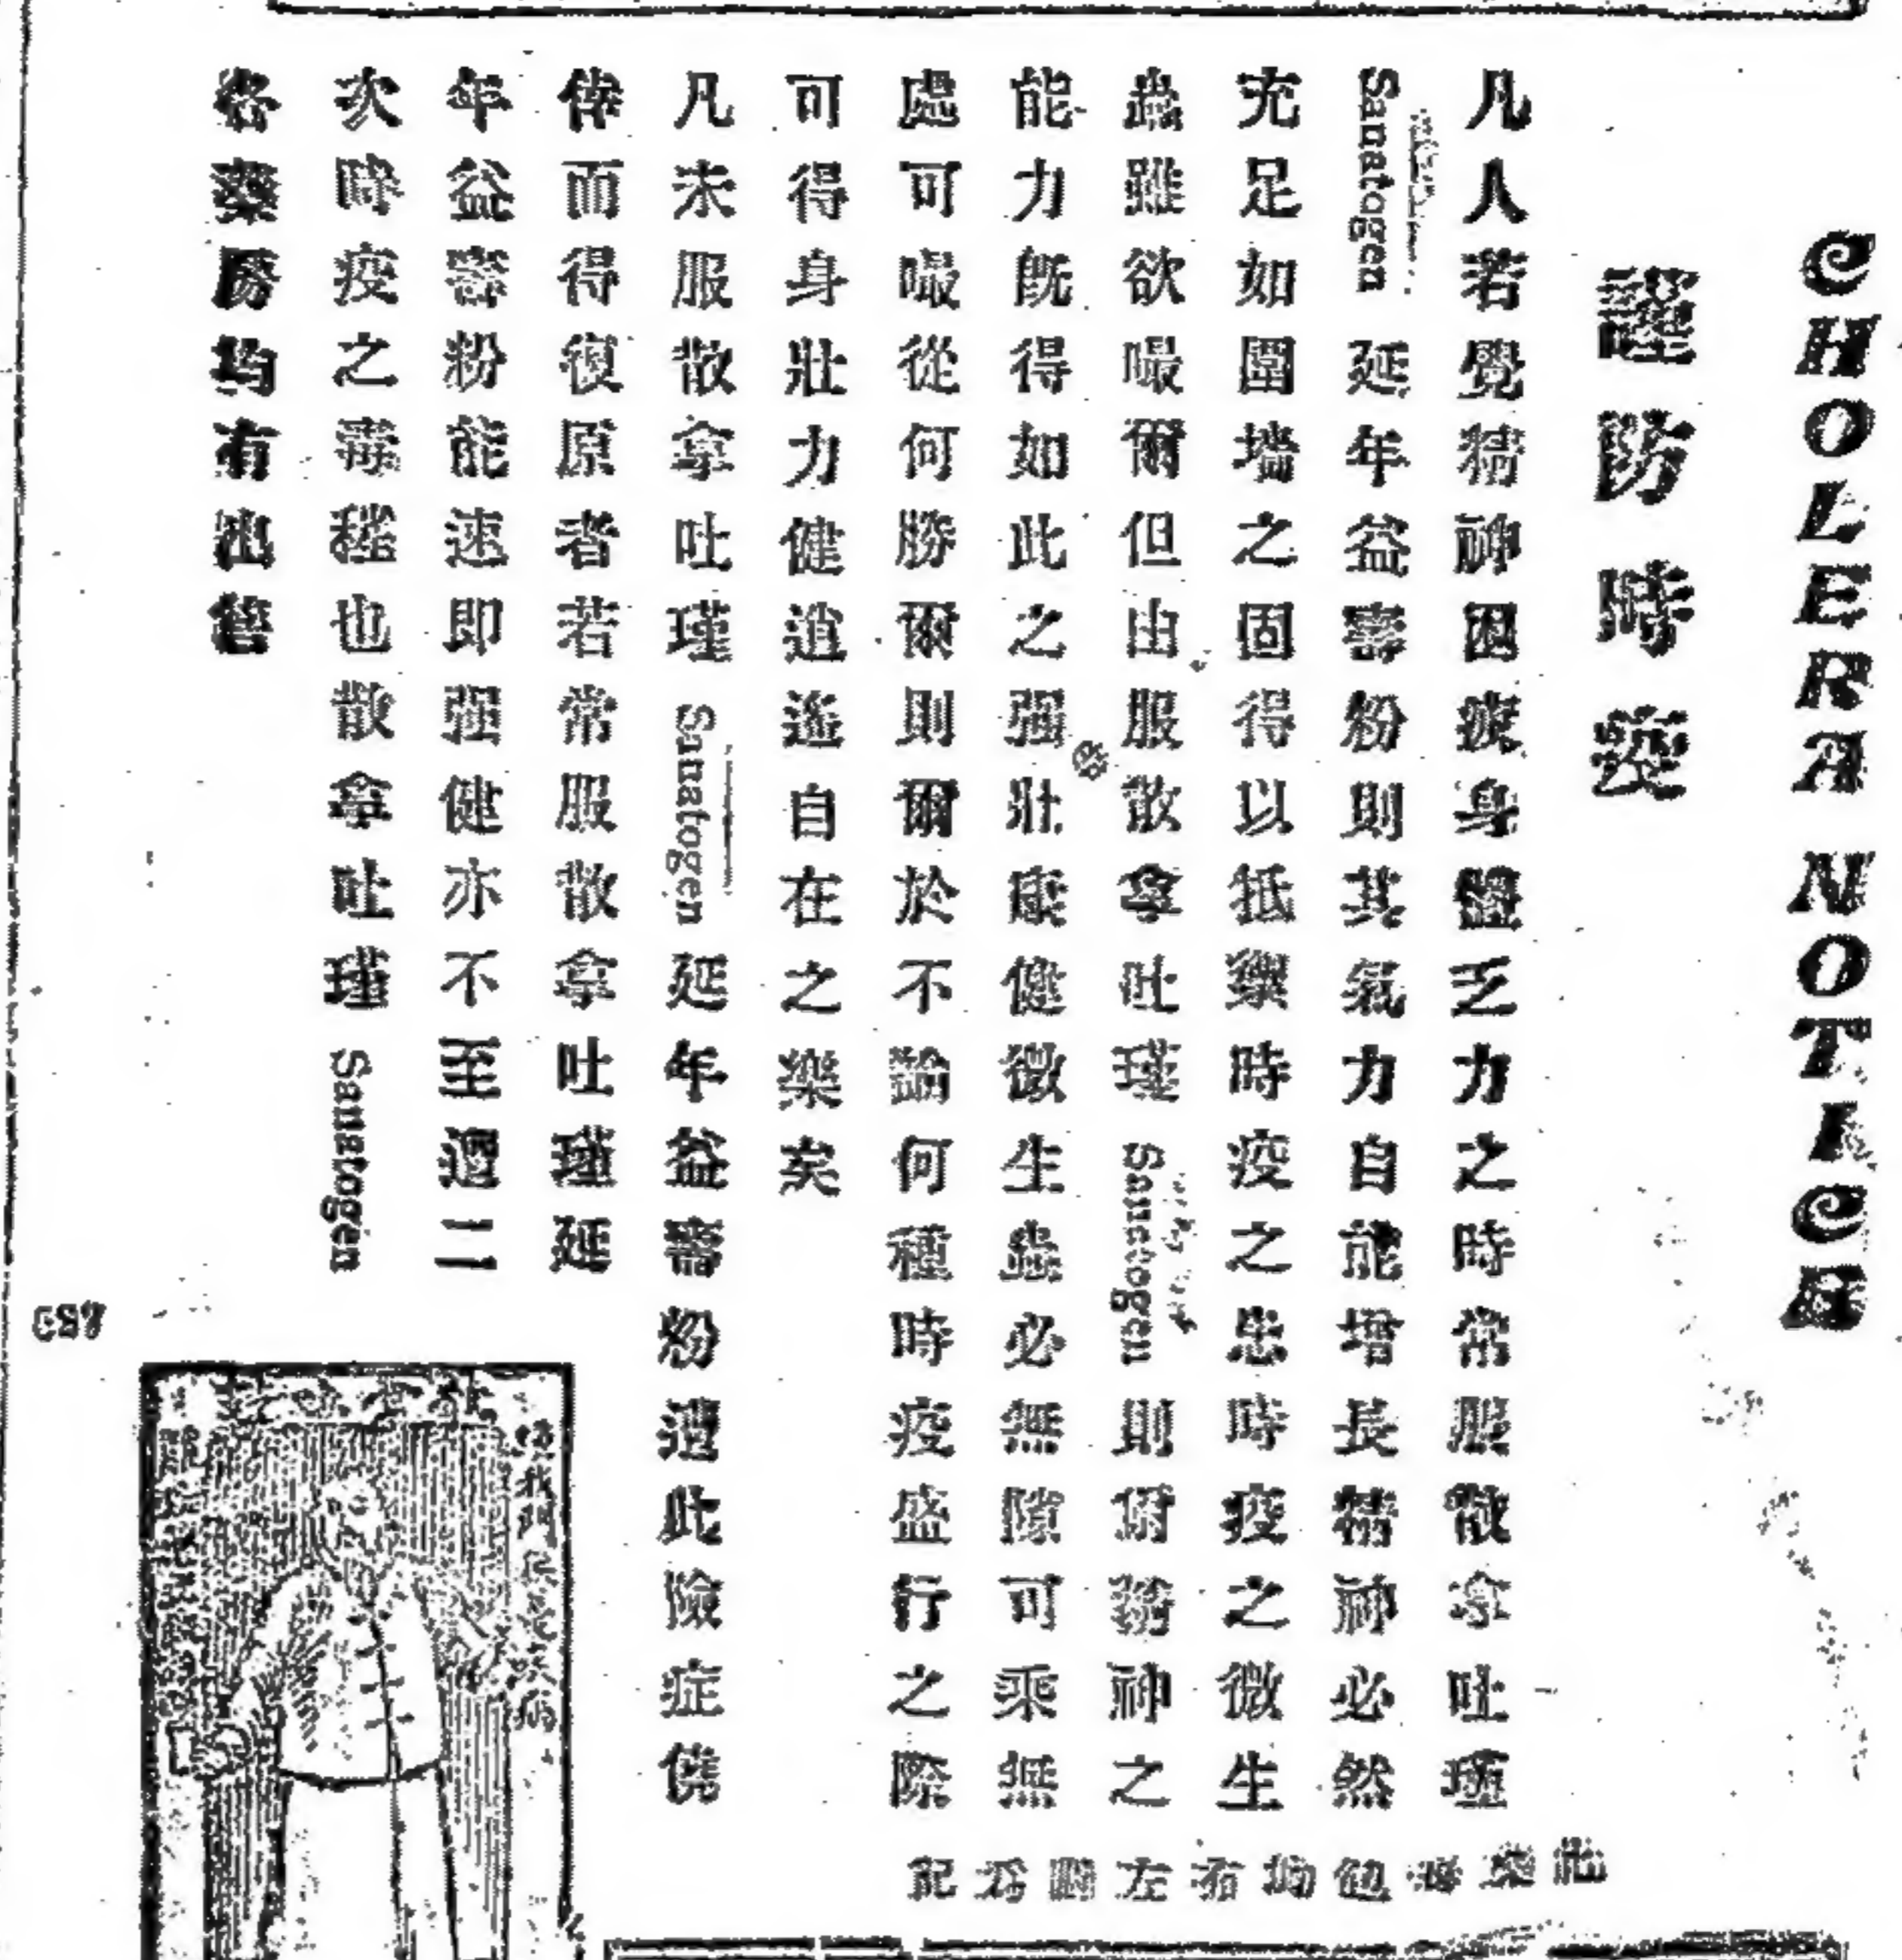 CHOLERA NOTICE
謹防時疫
凡人若覺精神困疲身體乏力之時常服散拿吐瑾
Sanatogen 延年益壽粉則其氣力自能增長精神必然
充足如圍墻之固得以抵禦時疫之患時疫之微生
蟲雖欲嘬爾但由服散拿吐瑾 Sanatogen 則爾精神之
能力既得如此之强壯康健微生蟲必無隙可乘無
處可嘬從何勝爾則爾於不論何種時疫盛行之際
可得身壯力健逍遙自在之樂矣
凡未服散拿吐瑾 Sanatogen 延年益壽粉遭此險症僥
倖而得復原者若常服散拿吐瑾延
年益壽粉能速即强健亦不至遭二
次時疫之毒 也散拿吐瑾 Sanatogen
各藥房均有出售
此藥每包均有左圖為記
我們 病